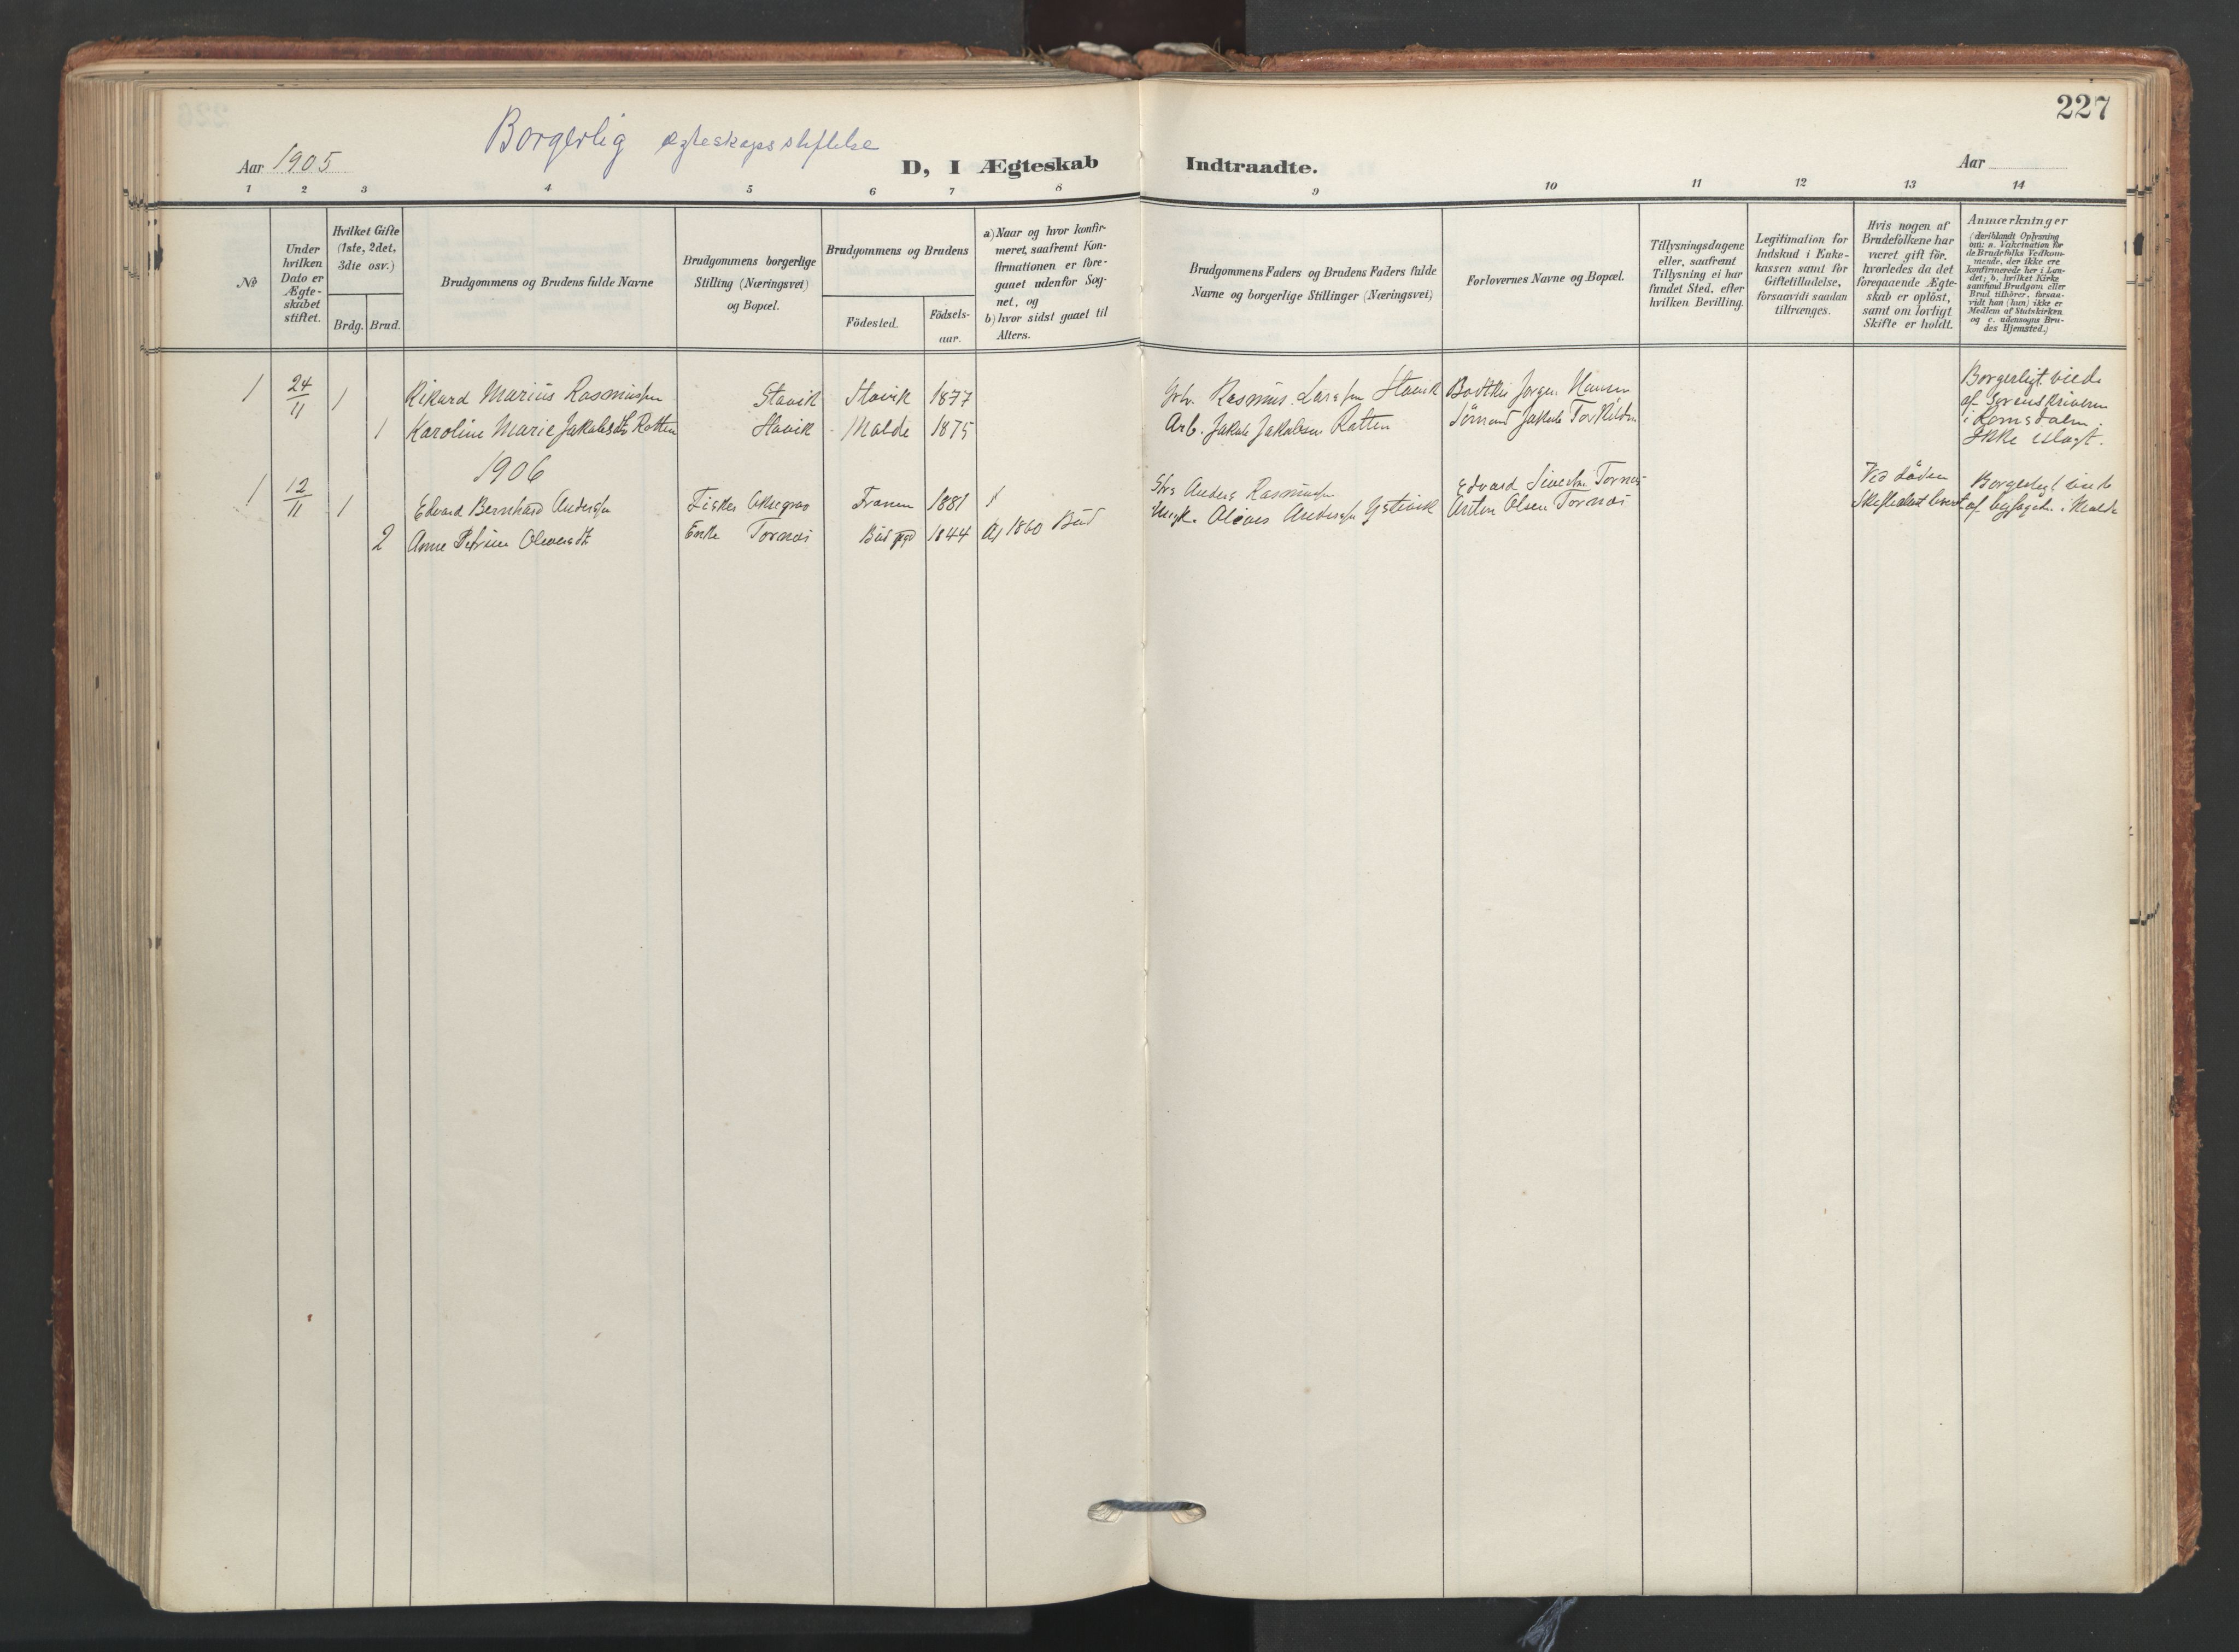 227
Borgerlig ægteskapsstiftelse
Aar 1905
D, I Ægteskab Indtraadte.
Aar
1 2 3 4 5 6 7 8 9 10 11 12 13 14
No
Under hvilken Dato er Ægteskabet stiftet.
Hvilket Gifte (1ste, 2det, 3die osv.)
Brdg. Brud.
Brudgommens og Brudens fulde Navne
Brudgommens borgerlige Stilling (Næringsvei) og Bopæl.
Brudgommens og Brudens
Födested.
Födselsaar.
a) Naar og hvor konfirmeret, saafremt Konfirmationen er foregaaet udenfor Sognet, og
b) hvor sidst gaaet til Alters.
Brudgommens Faders og Brudens Faders fulde Navne og borgerlige Stillinger (Næringsvei)
Forlovernes Navne og Bopæl.
Tillysningsdagene eller, saafremt Tillysning ei har fundet Sted, efter hvilken Bevilling.
Legitimation for Indskud i Enkekassen samt for Giftetilladelse, forsaavidt saadan tiltrænges.
Hvis nogen af Brudefolkene har været gift för, hvorledes da det foregaaende Ægteskab er oplöst, samt om lovligt Skifte er holdt.
Anmærkninger (deriblandt Oplysning om: a. Vakcination for de Brudefolks Vedkommende, der ikke ere konfirmerede her i Landet; b. hvilket Kirkesamfund Brudgom eller Brud tilhörer, forsaavidt han (hun) ikke er Medlem af Statskirken og c. udensogns Brudes Hjemsted.)
1 24/11 1 Rikard Marius Rasmussen Stavik Stavik 1877 Rasmus Larssen Stavik Jørgen Hansen Borgerligt viede
1 Karoline Marie Jakobsdtr Rotten Stavik Molde 1875 Arb. Jakob Jakobsen Rotten Jakob af Sorenskriveren
i Romsdalen.
Ikke ilagt.
1906
1 12/11 1 Edvard Bernhard Andersen Fisker Frænen 1881 Anders Rasmussen Edvard Tornæs Ved døden Borgerligt viede
2 Anne Petrine Olivesdtr Enke Tornæs Bud 1844 a) 1860 Bud Andersen Anton Olsen Tornæs af byfogden i Molde